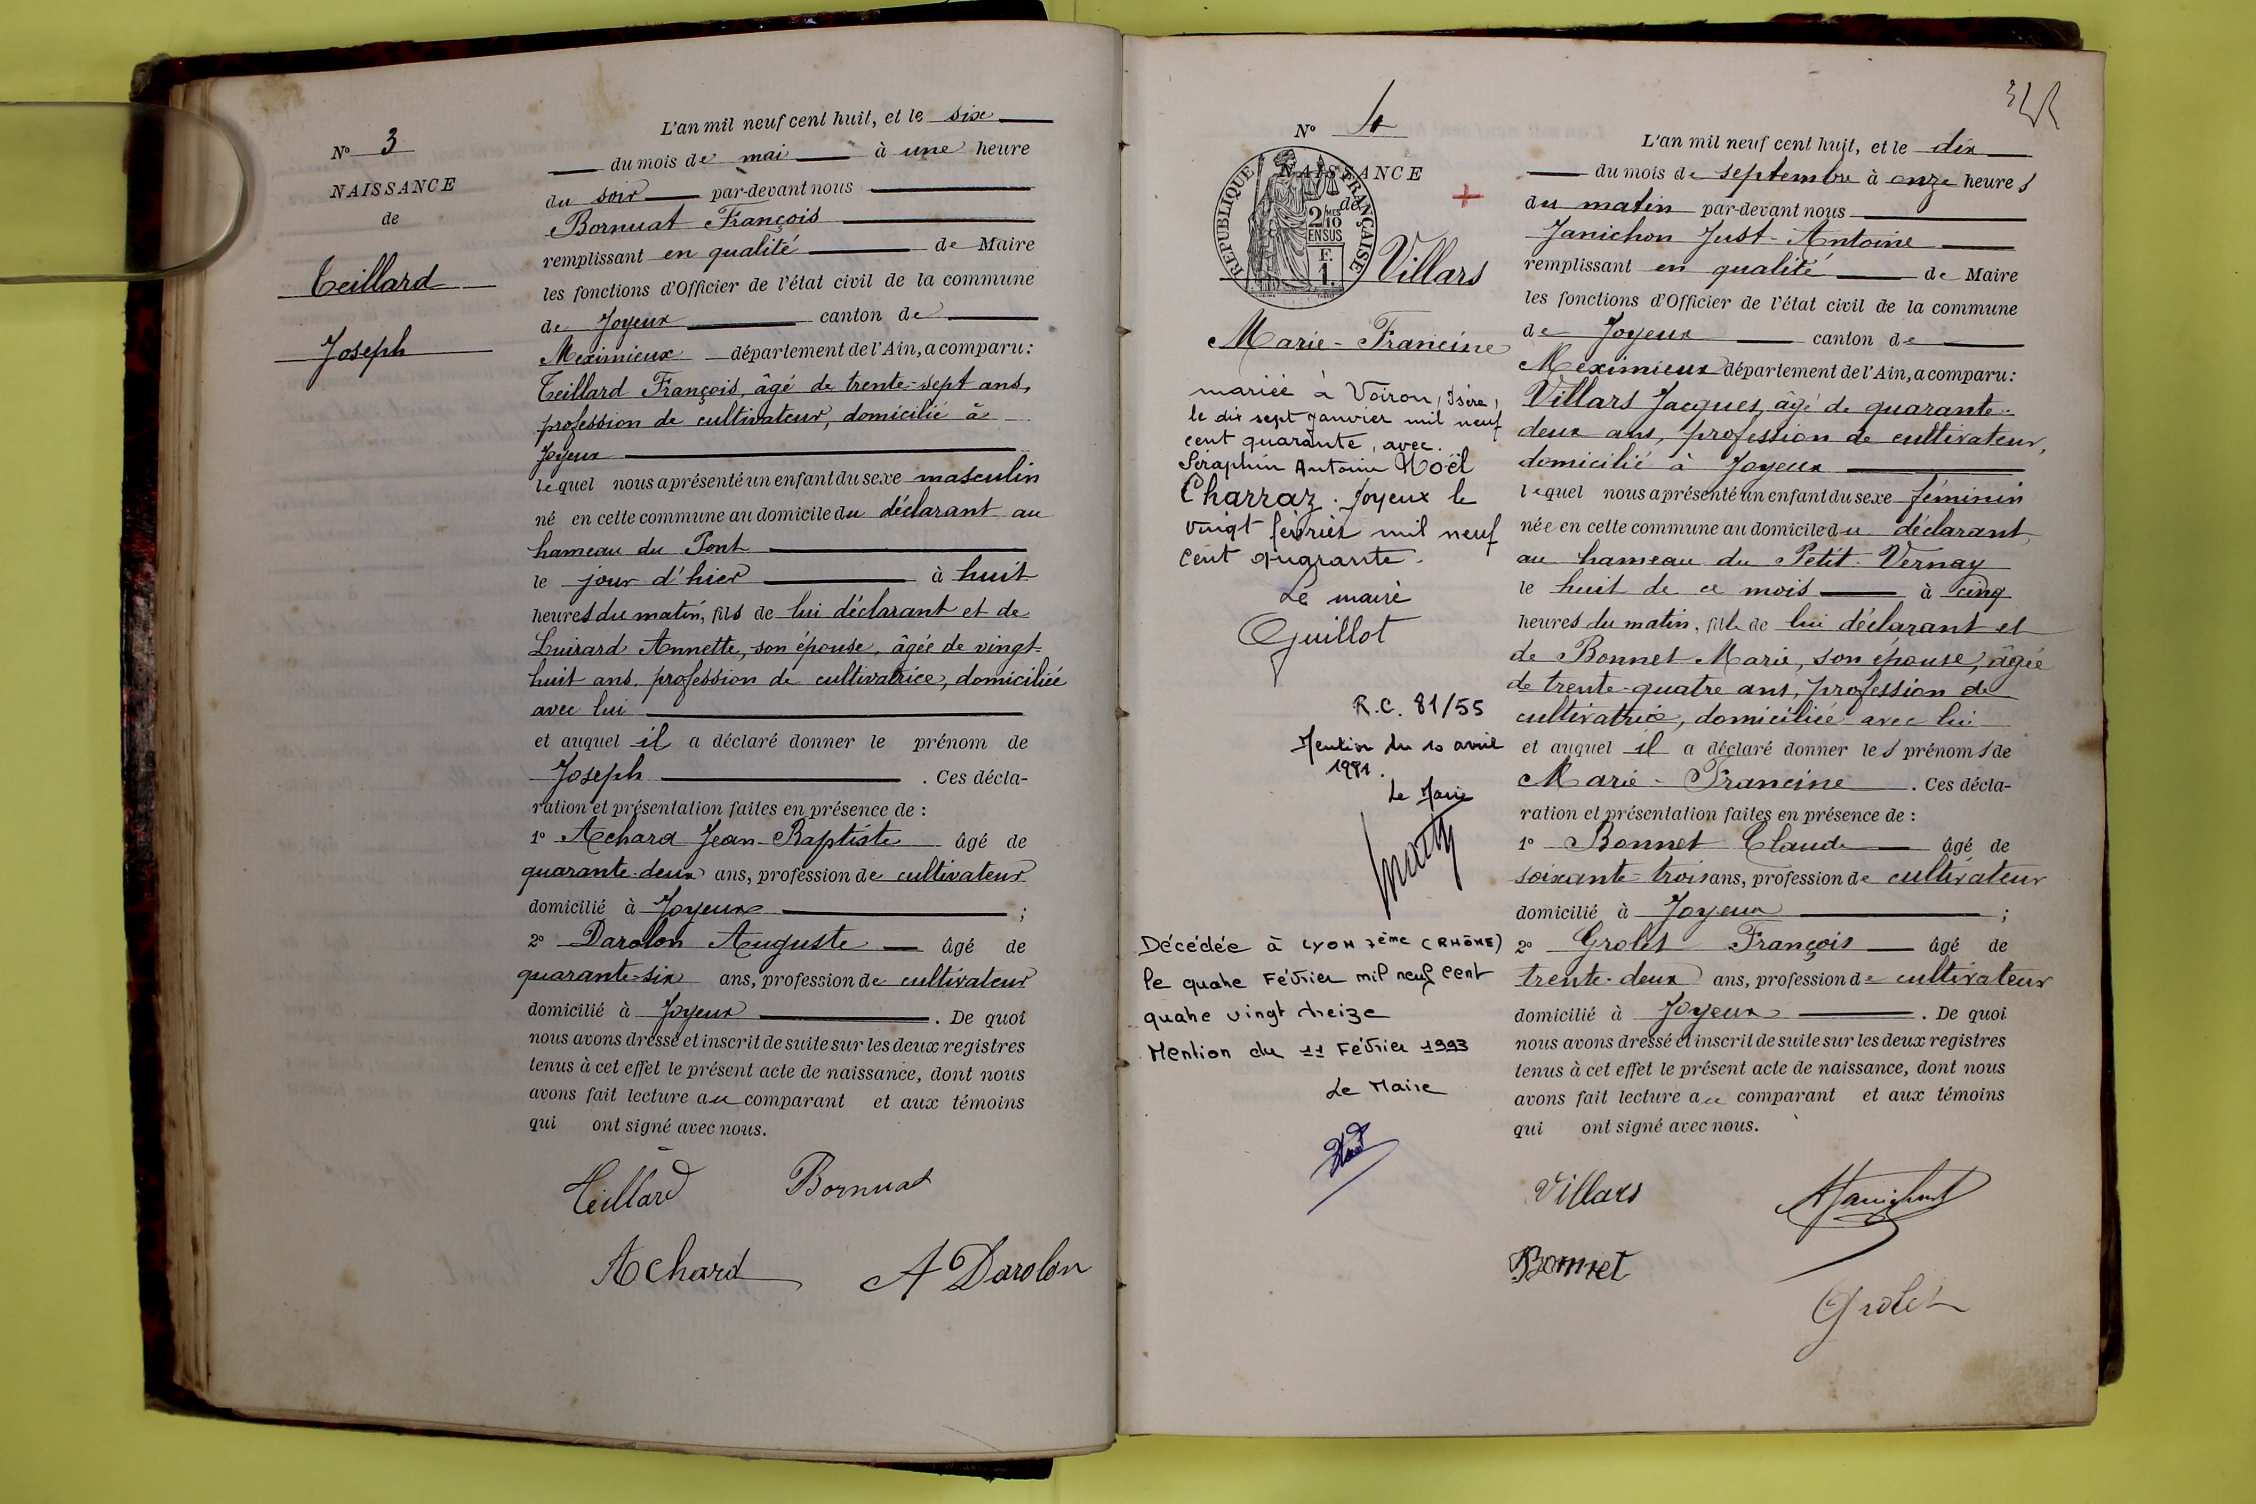 N° 3
NAISSANCE
de
Teillard
Joseph
L'an mil neuf cent huit, et le six
du mois de mai à une heure
du soir par-devant nous
Bornuat François
remplissant en qualité de Maire
les fonctions d'Officier de l'état civil de la commune
de Joyeux canton de
Meximieux département de l'Ain, a comparu :
Teillard François, âgé de trente-sept ans,
profession de cultivateur, domicilié à
Joyeux
lequel nous a présenté un enfant du sexe masculin
né en cette commune au domicile du déclarant au
hameau du Pont
le jour d'hier à huit
heures du matin, fils de lui déclarant et de
Luirard Annette, son épouse, âgée de vingt-
huit ans, profession de cultivatrice, domiciliée
avec lui
et auquel il a déclaré donner le prénom de
Joseph . Ces décla-
ration et présentation faites en présence de :
1° Achard Jean-Baptiste âgé de
quarante-deux ans, profession de cultivateur
domicilié à Joyeux ;
2° Darolon Auguste âgé de
quarante-six ans, profession de cultivateur
domicilié à Joyeux . De quoi
nous avons dressé et inscrit de suite sur les deux registres
tenus à cet effet le présent acte de naissance, dont nous
avons fait lecture au comparant et aux témoins
qui ont signé avec nous.
Teillard Bornuat
Achard A Darolon
N° 4
NAISSANCE
de
RÉPUBLIQUE FRANÇAISE
2/10
EN SUS
F.
1.
Villars
Marie-Francine
mariée à Voiron, Isère,
le dix sept janvier mil neuf
cent quarante, avec
Séraphin Antoine Noël
Charraz. Joyeux le
vingt février mil neuf
cent quarante.
Le maire
Guillot
R.C. 81/55
Mention du 10 avril
1981.
Le Maire
Décédée à LYON 7ème (RHÔNE)
le quatre Février mil neuf cent
quatre vingt treize
Mention du 11 Février 1993
Le Maire
L'an mil neuf cent huit, et le dix
du mois de septembre à onze heures
du matin par-devant nous
Janichon Just-Antoine
remplissant en qualité de Maire
les fonctions d'Officier de l'état civil de la commune
de Joyeux canton de
Meximieux département de l'Ain, a comparu :
Villars Jacques, âgé de quarante-
deux ans, profession de cultivateur,
domicilié à Joyeux
lequel nous a présenté un enfant du sexe féminin
née en cette commune au domicile du déclarant,
au hameau du Petit Vernay
le huit de ce mois à cinq
heures du matin, fille de lui déclarant et
de Bonnet Marie, son épouse, âgée
de trente-quatre ans, profession de
cultivatrice, domiciliée avec lui
et auquel il a déclaré donner les prénoms de
Marie-Francine . Ces décla-
ration et présentation faites en présence de :
1° Bonnet Claude âgé de
soixante-trois ans, profession de cultivateur
domicilié à Joyeux ;
2° Grolet François âgé de
trente-deux ans, profession de cultivateur
domicilié à Joyeux . De quoi
nous avons dressé et inscrit de suite sur les deux registres
tenus à cet effet le présent acte de naissance, dont nous
avons fait lecture au comparant et aux témoins
qui ont signé avec nous.
Villars
Bonnet
Grolet